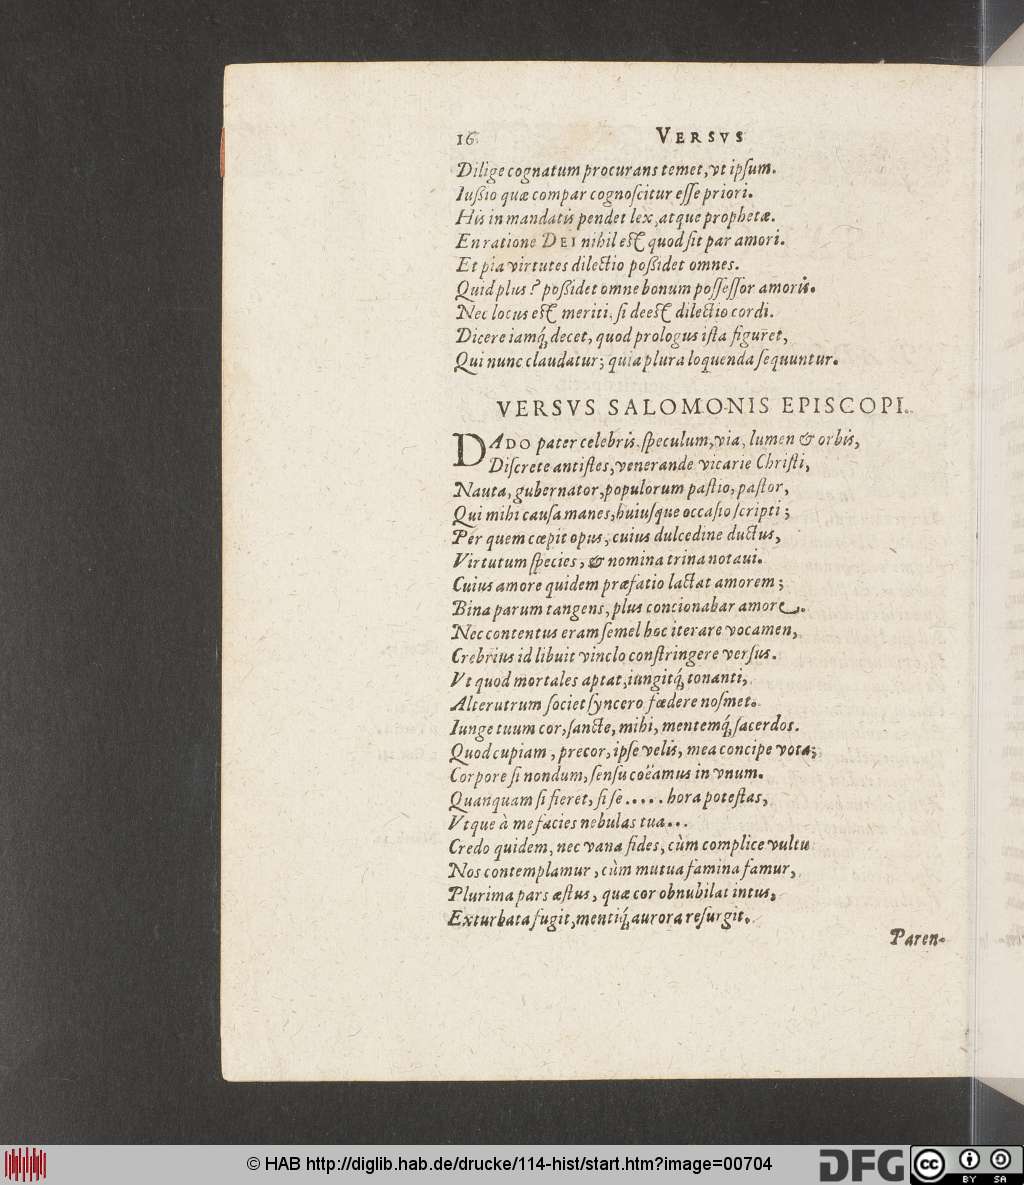 16 VERSVS
Dilige cognatum procurans temet, vt ipſum.
Iußio quæ compar cognoſcitur eſſe priori.
His in mandatis pendet lex, atque prophetæ.
En ratione DEI nihil eſt quod ſit par amori.
Et pia virtutes dilectio poßidet omnes.
Quid plus? poßidet omne bonum poſſeſſor amoris.
Nec locus eſt meriti, ſi deeſt dilectio cordi.
Dicere iamq́; decet, quod prologus iſta figuret,
Qui nunc claudatur; quia plura loquenda ſequuntur.
VERSVS SALOMONIS EPISCOPI.
DADO pater celebris, ſpeculum, via, lumen & orbis,
Diſcrete antiſtes, venerande vicarie Chriſti,
Nauta, gubernator, populorum paſtio, paſtor,
Qui mihi cauſa manes, huiuſque occaſio ſcripti;
Per quem cœpit opus, cuius dulcedine ductus,
Virtutum ſpecies, & nomina trina notaui.
Cuius amore quidem præfatio lactat amorem;
Bina parum tangens, plus concionabar amore.
Nec contentus eram ſemel hoc iterare vocamen,
Crebrius id libuit vinclo conſtringere verſus.
Vt quod mortales aptat, iungitq́; tonanti,
Alterutrum ſociet ſyncero fœdere noſmet.
Iunge tuum cor, ſancte, mihi, mentemq́; ſacerdos.
Quod cupiam, precor, ipſe velis, mea concipe vota;
Corpore ſi nondum, ſenſu coëamus in vnum.
Quanquam ſi fieret, ſi ſe ..... hora poteſtas,
Vtque à me facies nebulas tua...
Credo quidem, nec vana fides, cùm complice vultu
Nos contemplamur, cùm mutua famina famur,
Plurima pars æſtus, quæ cor obnubilat intus,
Exturbata fugit, mentiq́; aurora reſurgit.
Paren-
© HAB http://diglib.hab.de/drucke/114-hist/start.htm?image=00704
DFG
cc BY SA